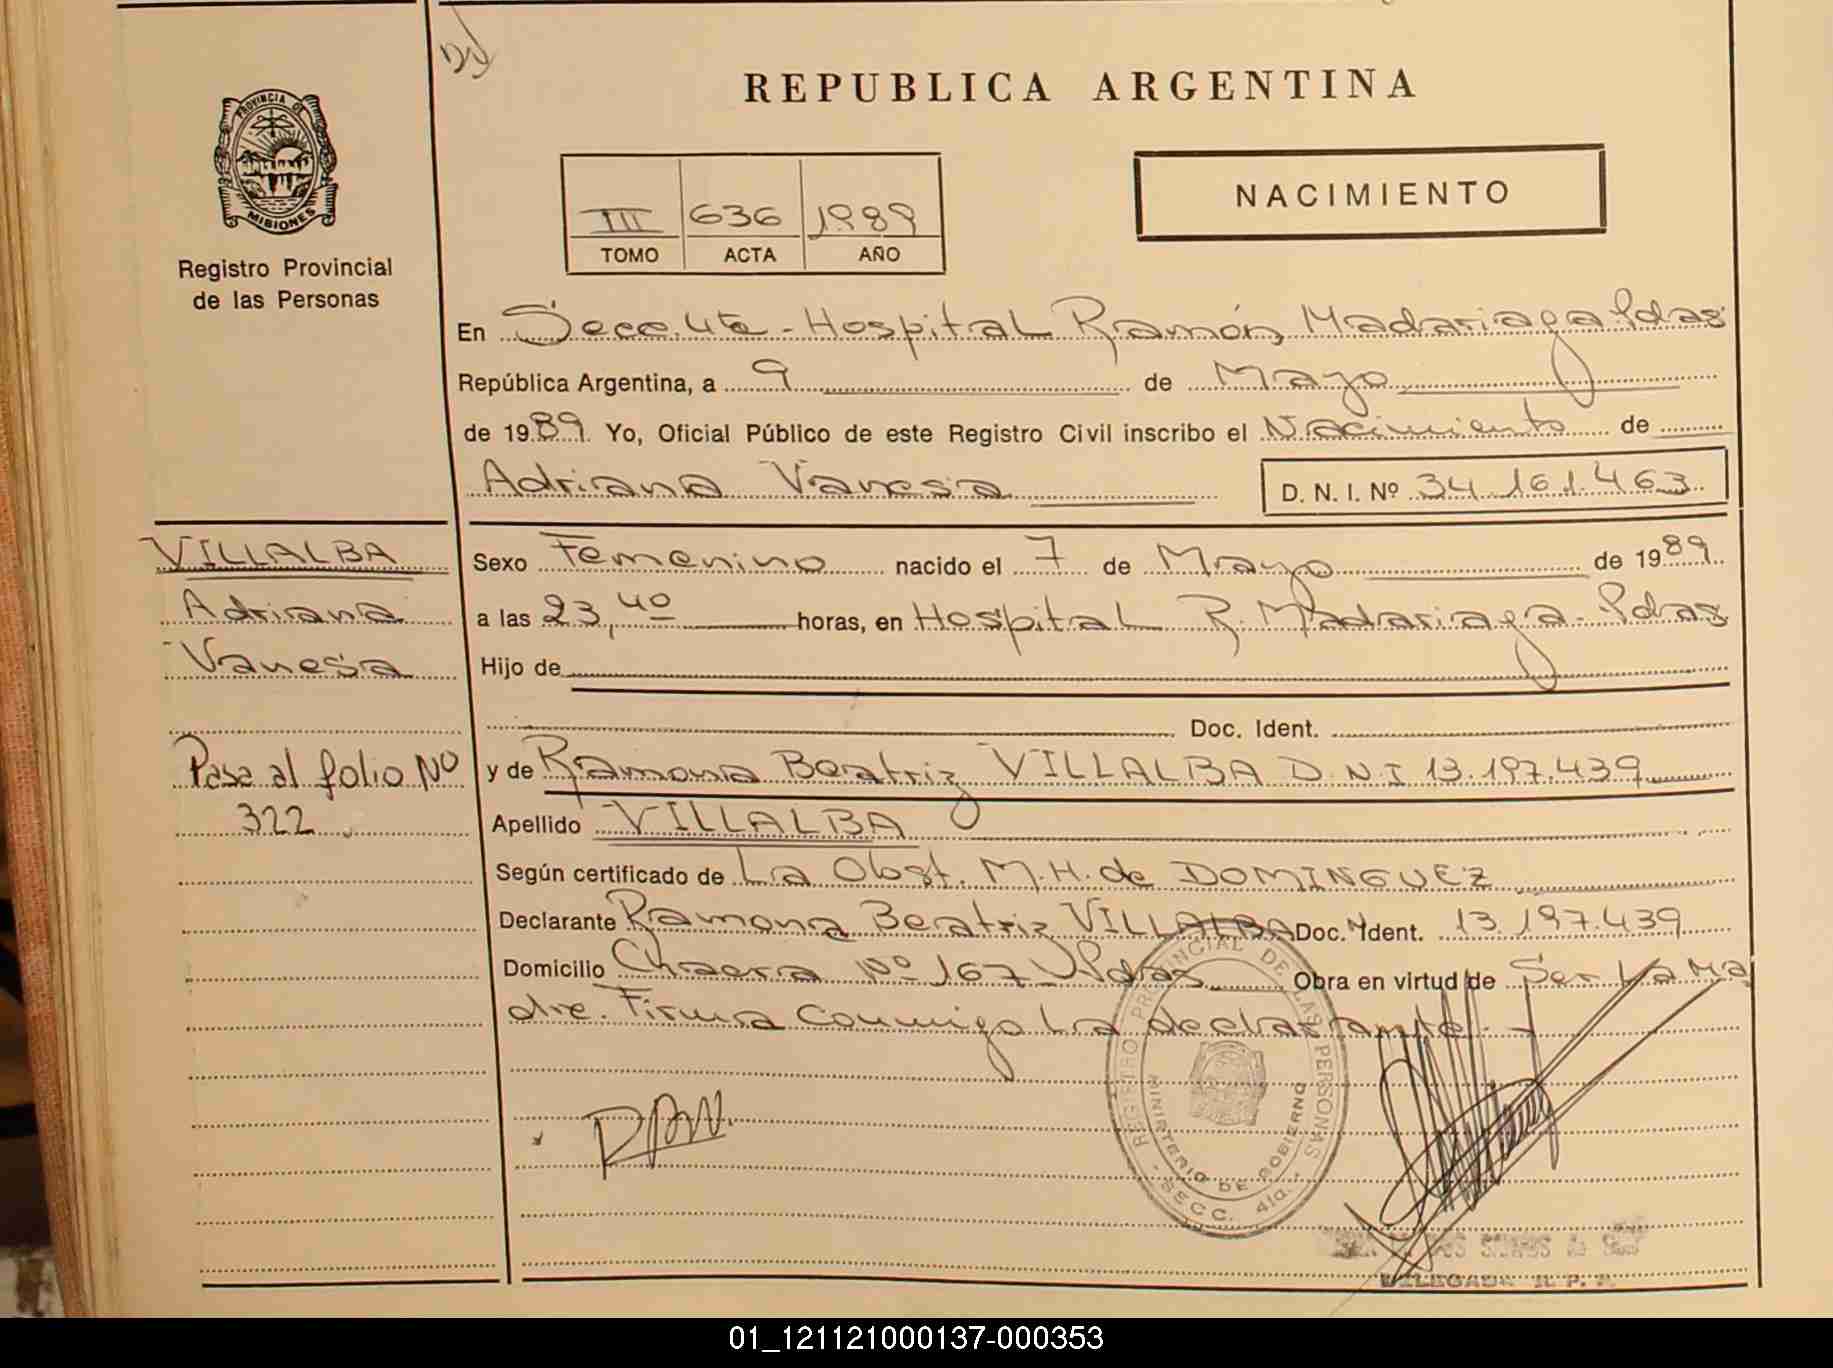 REPUBLICA ARGENTINA
PROVINCIA DE
MISIONES
Registro Provincial
de las Personas
NACIMIENTO
III 636 1989
TOMO ACTA AÑO
En Secc. 4ta - Hospital Ramón Madariaga Pdas
República Argentina, a 9 de Mayo
de 1989. Yo, Oficial Público de este Registro Civil inscribo el Nacimiento de
Adriana Vanesa D. N. I. Nº 34.161.463
VILLALBA
Adriana
Vanesa
Pasa al folio Nº
322
Sexo Femenino nacido el 7 de Mayo de 1989
a las 23,40 horas, en Hospital R. Madariaga - Pdas
Hijo de
Doc. Ident.
y de Ramona Beatriz VILLALBA D.N.I 13.197.439
Apellido VILLALBA
Según certificado de La Obst. M.H. de DOMINGUEZ
Declarante Ramona Beatriz VILLALBA Doc. Ident. 13.197.439
Domicilio Chacra Nº 167 - Pdas Obra en virtud de Ser La Ma
dre. Firma Conmigo La declarante -
REGISTRO PROVINCIAL DE LAS PERSONAS
MINISTERIO DE GOBIERNO
SECC. 4ta.
DELEGADA R. P. P.
01_121121000137-000353